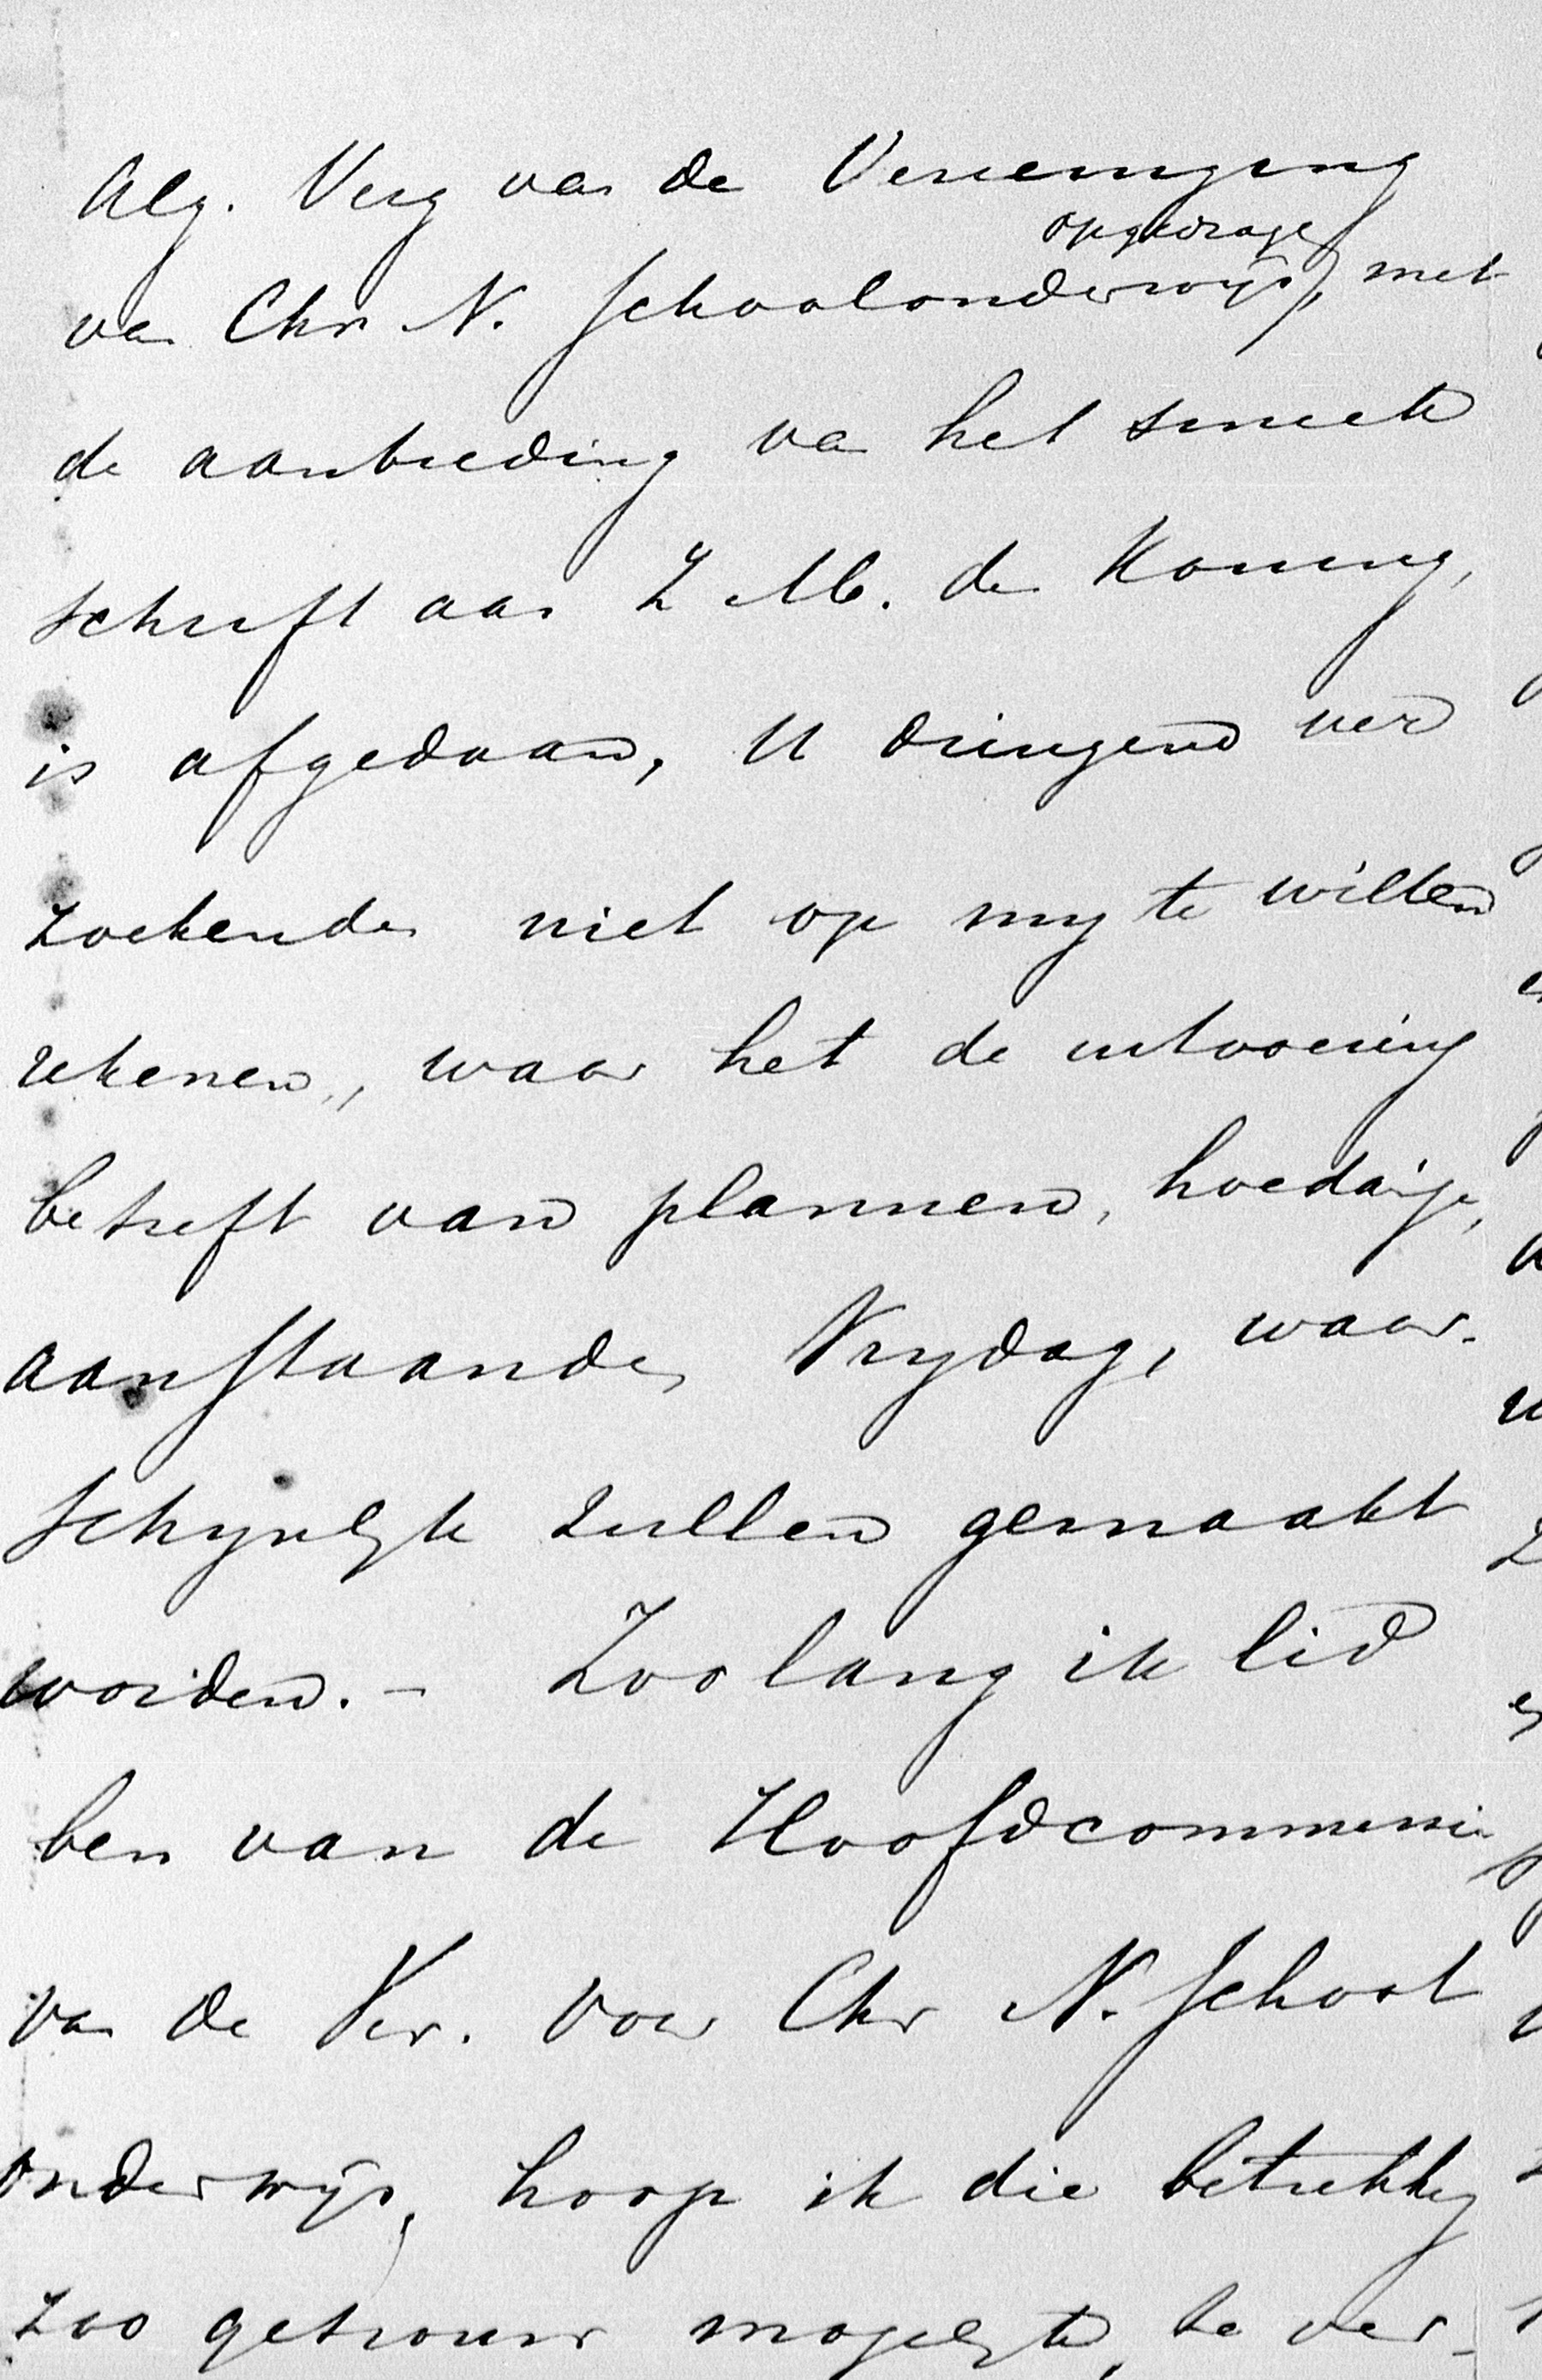 Alg. Verg van de Vereeniging
opgedrage
van Chr N. Schoolonderwijs, met
de aanbieding van het smeek
schrift aan Z M. den Koning,
is afgedaan, U dringend ver
zoekende niet op my te willen
rekenen, waar het de uitvoering
betreft van plannen, hoedanige,
aanstaande Vrydag, waar-
schynlyk zullen gemaakt
worden. - Zoo lang ik lid
ben van de Hoofdcommissie
van de Ver. voor Chr N. School
onderwijs, hoop ik die betrekking
zoo getrouw mogelyk te ver-